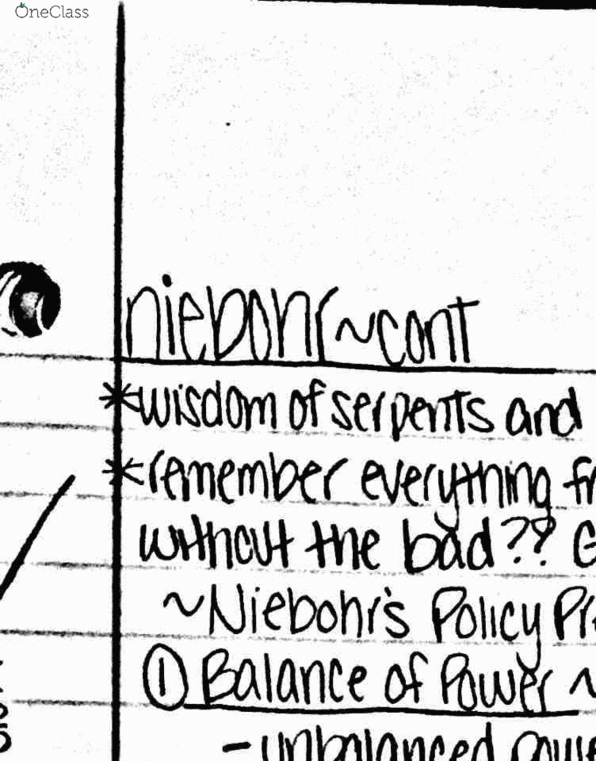 OneClass
niebohr~cont
*wisdom of serpents and
*remember everything
without the bad??
~Niebohr's Policy
① Balance of Power ~
- unbalanced